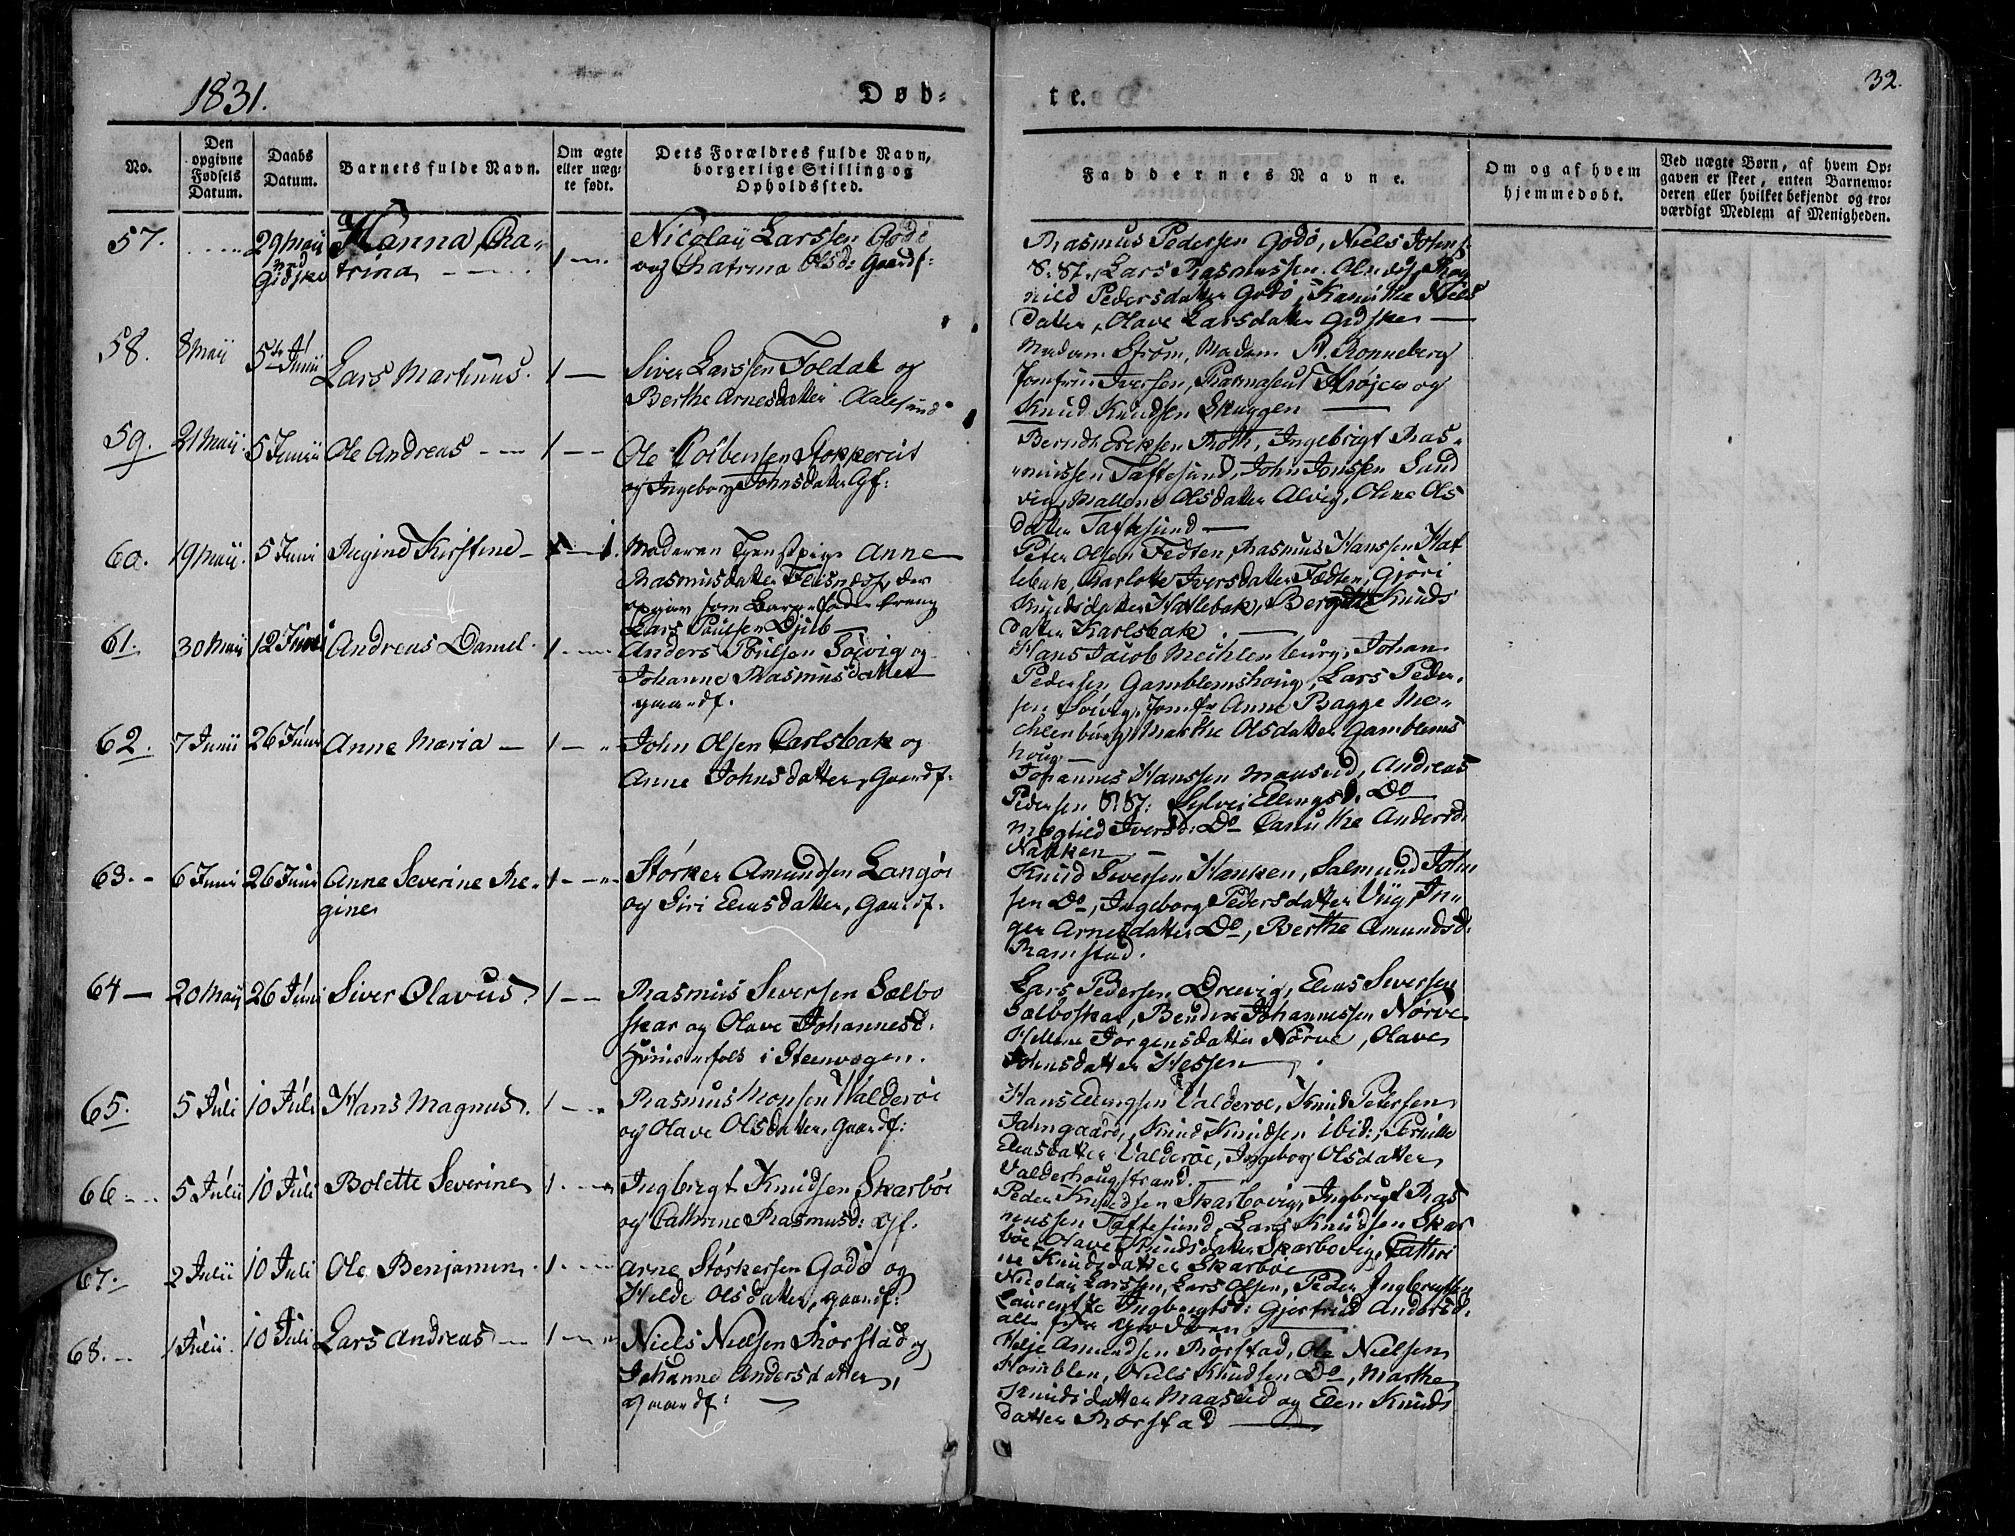 1831.
Døb-
te.
32.
No.
Den
opgivne
Fødsels
Datum.
Daabs
Datum.
Barnets fulde Navn.
Om ægte
eller uæg-
te født.
Dets Forældres fulde Navn,
borgerlige Stilling og
Opholdssted.
Faddernes Navne.
Om og af hvem
hjemmedøbt.
Ved uægte Børn, af hvem Op-
gaven er skeet, enten Barnemo-
deren eller hvilket bekjendt og tro-
værdigt Medlem af Menigheden.
57. 29 Maii Hanna Cha-
Gidske trina 1
Nicolaii Larssen Godø
og Chatrina Olsd: Gaardf:
Rasmus Pedersen Godø, Niels Johns:
Lars Rasmussen Rag
nild Pedersdatter Godø, Kanutke Niels
datter, Olave Larsdatter Gidske
58. 8 Maii 5te Junii Lars Martinus. 1
Siver Larssen Foldal og
Berthe Arnesdatter Aalesund
Madam Strøm, Madam A. Ronneberg
Jomfru Iversen, Thrøjer og
Knud Knudsen Skuggen
59. 21 Maii 5 Junii Ole Andreas 1
Ole Colbensen Stokkereit
og Ingeborg Johnsdatter Gf:
Berndt Ericksen Roth, Ingebrigt Ras-
mussen Taftesund, John Jonssen Sand
vig, Mallene Olsdatter Alvig, Olene Ols
datter Taftesund
60. 19 Maii. 5 Juni Regine Kirstine 1.
Moderen Tjenstpige Anne
Rasmusdatter Flisnæs, der
opgiver som Barnefader Dreng
Lars Poulsen Djub
Peter Olsen Fedten, Rasmus Hanssen Hat
lebak, Charlotte Iversdatter Fedten, Gjøri
Knudsdatter Hatlebak, Bergitte Knuds
datter Karlsbak.
61. 30 Maii 12 Juni Andreas Daniel. 1
Anders Poulsen Soevig og
Johanne Rasmusdatter
gaardf.
Hans Jacob Meihlenburg, Johan
Pedersen Gamblemshoug, Lars Peder-
sen Soevig, Jomfr Anne Bagge Me-
chlenburg, Marthe Olsdatter Gamblems
houg
62. 7 Junii 26 Juni Anne Maria 1
John Olsen Carlsbak og
Anne Johnsdatter, Gaardf:
Johannes Hanssen Maaseid, Andreas
Pedersen Sylvei Ellingsd. Do
Magtild Iversd: Do Canutke Andersd.
Nakken
63. 6 Juni 26 Juni Anne Severine Re-
gine 1
Størker Amundsen Langøe
og Siri Elensdatter, Gaardf.
Knud Iversen Hanken, Salmund John
sen Do, Ingeborg Pedersdatter Viig In-
ger Arnesdatter Do, Berthe Amundsd.
Ramstad.
64 20 Maii 26 Juni Siver Olavus. 1
Rasmus Seversen Sælbo
skar og Olave Johannesd.
Huusmfolk i Steenvogen.
Lars Pedersen Drevig, Elias Seversen
Sælboskar, Bendix Johannessen Nørve
Hellene Jørgensdatter Nørve, Olave
Johnsdatter Hessen
65. 5 Juli 10 Juli Hans Magnus. 1
Rasmus Monsen Walderøe
og Olave Olsdatter, Gaardf:
Hans Ellingsen Valderøe, Knud Petersen
Jahngaard, Knud Knudsen ibid:, Pernille
Eliasdatter Valderøe, Ingeborg Olsdatter
Valderhougstrand.
66 5 Julii 10 Juli Bolette Severine 1
Ingbrigt Knudsen Skarbøe
og Cathrine Rasmusd: Gf.
Peder Knudsen Skarbovig, Ingbrigt Ras
mussen Taftesund, Lars Knudsen Skar
bøe, Olave Knudsdatter Skarbovig, Cathri
ne Knudsdatter Skarbøe
67. 2 Julii 10 Juli Ole Benjamin. 1
Arne Størkersen Godø og
Hilde Olsdatter, gaardf:
Nicolai Larssen, Lars Olsen, Peder Ingbrigtsen
Laurentze Ingbrigtsd: Gjertrud Andersd.
alle fra Godøen
68. 1 Julii. 10 Juli Lars Andreas 1
Niels Nielsen Rørstad og
Johanne Andersdatter,
gaardf:
Helje Amundsen Rørstad, Ole Nielsen
Hamblen, Niels Knudsen Do, Marthe
Knudsdatter Maaseid og Elen Knuds
datter Rorstad